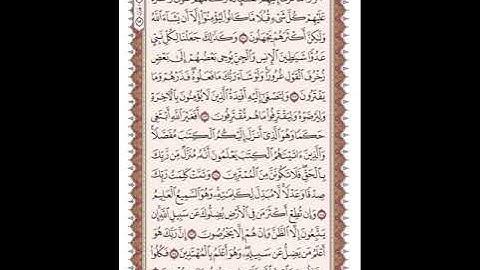 عَلَيْهِمْ كُلَّ شَىْءٍ قُبُلًا مَّا كَانُوا۟ لِيُؤْمِنُوٓا۟ إِلَّآ أَن يَشَآءَ ٱللَّهُ
وَلَٰكِنَّ أَكْثَرَهُمْ يَجْهَلُونَ وَكَذَٰلِكَ جَعَلْنَا لِكُلِّ نَبِىٍّ
عَدُوًّا شَيَٰطِينَ ٱلْإِنسِ وَٱلْجِنِّ يُوحِى بَعْضُهُمْ إِلَىٰ بَعْضٍ
زُخْرُفَ ٱلْقَوْلِ غُرُورًا وَلَوْ شَآءَ رَبُّكَ مَا فَعَلُوهُ فَذَرْهُمْ وَمَا
يَفْتَرُونَ وَلِتَصْغَىٰٓ إِلَيْهِ أَفْـِٔدَةُ ٱلَّذِينَ لَا يُؤْمِنُونَ بِٱلْءَاخِرَةِ
وَلِيَرْضَوْهُ وَلِيَقْتَرِفُوا۟ مَا هُم مُّقْتَرِفُونَ أَفَغَيْرَ ٱللَّهِ أَبْتَغِى
حَكَمًا وَهُوَ ٱلَّذِىٓ أَنزَلَ إِلَيْكُمُ ٱلْكِتَٰبَ مُفَصَّلًا
وَٱلَّذِينَ ءَاتَيْنَٰهُمُ ٱلْكِتَٰبَ يَعْلَمُونَ أَنَّهُۥ مُنَزَّلٌ مِّن رَّبِّكَ
بِٱلْحَقِّ فَلَا تَكُونَنَّ مِنَ ٱلْمُمْتَرِينَ وَتَمَّتْ كَلِمَتُ رَبِّكَ
صِدْقًا وَعَدْلًا لَّا مُبَدِّلَ لِكَلِمَٰتِهِۦ وَهُوَ ٱلسَّمِيعُ ٱلْعَلِيمُ
وَإِن تُطِعْ أَكْثَرَ مَن فِى ٱلْأَرْضِ يُضِلُّوكَ عَن سَبِيلِ ٱللَّهِ إِن
يَتَّبِعُونَ إِلَّا ٱلظَّنَّ وَإِنْ هُمْ إِلَّا يَخْرُصُونَ إِنَّ رَبَّكَ هُوَ
أَعْلَمُ مَن يَضِلُّ عَن سَبِيلِهِۦ وَهُوَ أَعْلَمُ بِٱلْمُهْتَدِينَ فَكُلُوا۟